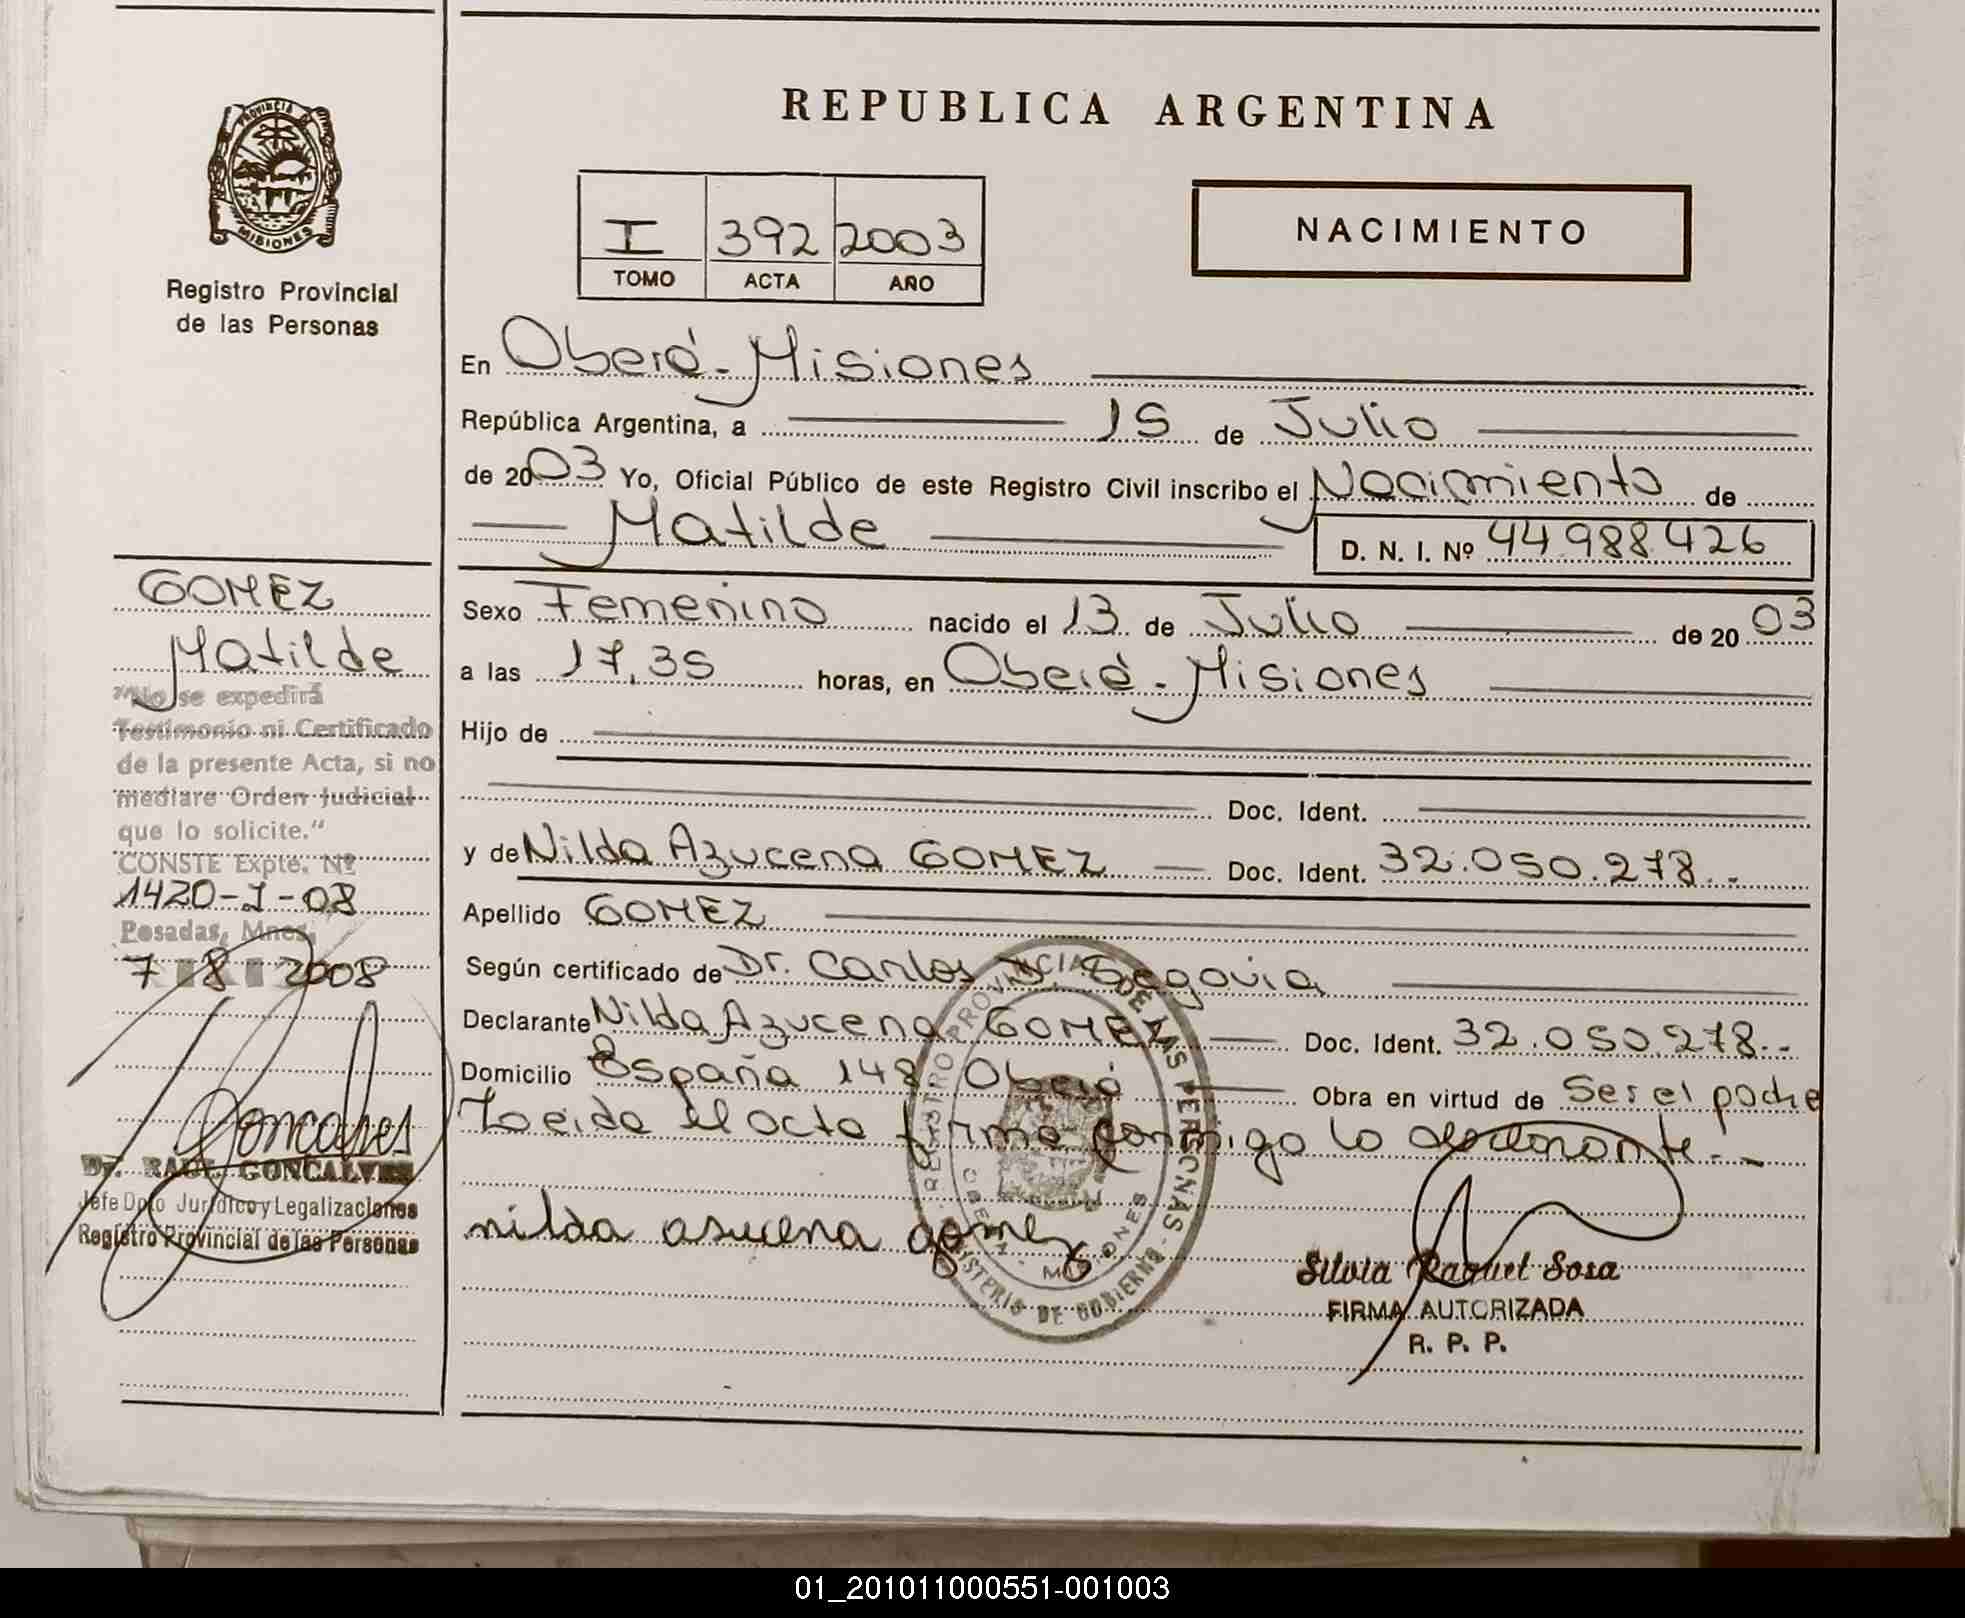 REPUBLICA ARGENTINA
PROVINCIA
MISIONES
Registro Provincial
de las Personas
I 392 2003
TOMO ACTA AÑO
NACIMIENTO
En Oberá-Misiones
República Argentina, a 15 de Julio
de 2003 Yo, Oficial Público de este Registro Civil inscribo el Nacimiento de
Matilde D. N. I. Nº 44 988 426
Sexo Femenino nacido el 13 de Julio de 20 03
a las 17,35 horas, en Oberá-Misiones
Hijo de
Doc. Ident.
y de Nilda Azucena GOMEZ Doc. Ident. 32.050.278.-
Apellido GOMEZ
Según certificado de Dr. Carlos Segovia
Declarante Nilda Azucena GOMEZ Doc. Ident. 32.050.278.-
Domicilio España 148 Oberá Obra en virtud de Ser el padre
Leida el acta firma conmigo la declarante.-
nilda asucena gomez
REGISTRO PROVINCIAL DE LAS PERSONAS
MINISTERIO DE GOBIERNO
MISIONES
Silvia Raquel Sosa
FIRMA AUTORIZADA
R. P. P.
GOMEZ
Matilde
"No se expedirá
Testimonio ni Certificado
de la presente Acta, si no
mediare Orden Judicial
que lo solicite."
CONSTE Expte. Nº
1420-J-08
Posadas, Mnes,
7 8 2008
Goncalves
Dr. RAUL GONCALVES
Jefe Dpto Jurídico y Legalizaciones
Registro Provincial de las Personas
01_201011000551-001003